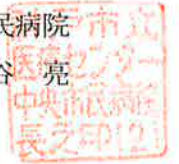 民病院
谷 亮
戸市立
医療センター
中央市民病院
長之印(2)